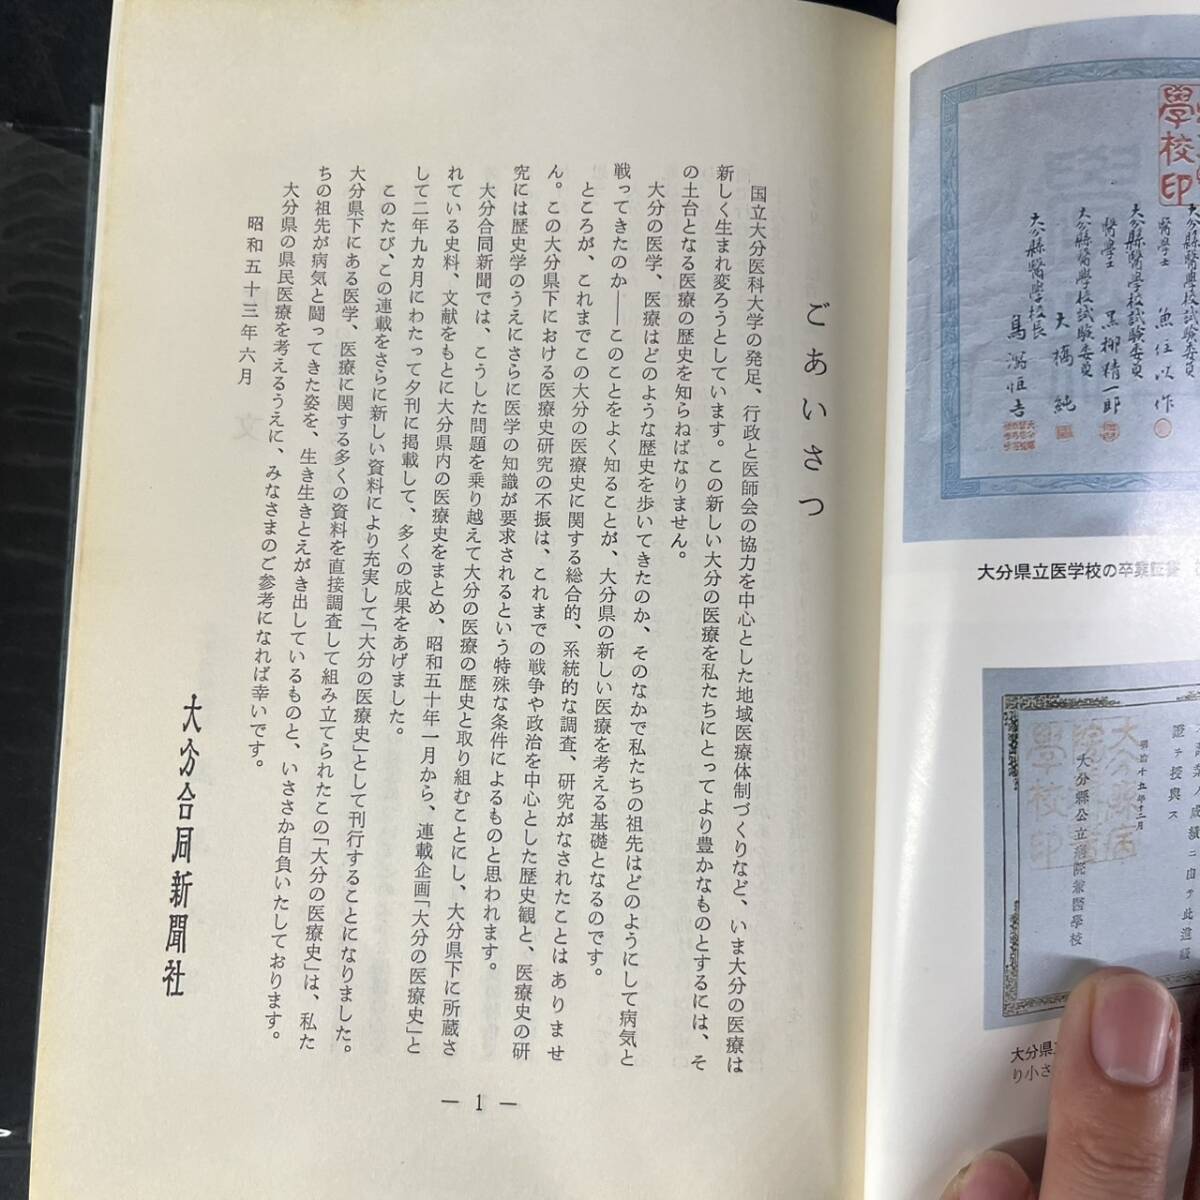 ごあいさつ
国立大分医科大学の発足、行政と医師会の協力を中心とした地域医療体制づくりなど、いま大分の医療は
新しく生まれ変ろうとしています。この新しい大分の医療を私たちにとってより豊かなものとするには、そ
の土台となる医療の歴史を知らねばなりません。
大分の医学、医療はどのような歴史を歩いてきたのか、そのなかで私たちの祖先はどのようにして病気と
戦ってきたのか――このことをよく知ることが、大分県の新しい医療を考える基礎となるのです。
ところが、これまでこの大分の医療史に関する総合的、系統的な調査、研究がなされたことはありませ
ん。この大分県下における医療史研究の不振は、これまでの戦争や政治を中心とした歴史観と、医療史の研
究には歴史学のうえにさらに医学の知識が要求されるという特殊な条件によるものと思われます。
大分合同新聞では、こうした問題を乗り越えて大分の医療の歴史と取り組むことにし、大分県下に所蔵さ
れている史料、文献をもとに大分県内の医療史をまとめ、昭和五十年一月から、連載企画「大分の医療史」と
して二年九カ月にわたって夕刊に掲載して、多くの成果をあげました。
このたび、この連載をさらに新しい資料により充実して「大分の医療史」として刊行することになりました。
大分県下にある医学、医療に関する多くの資料を直接調査して組み立てられたこの「大分の医療史」は、私た
ちの祖先が病気と闘ってきた姿を、生き生きとえがき出しているものと、いささか自負いたしております。
大分県の県民医療を考えるうえに、みなさまのご参考になれば幸いです。
昭和五十三年六月
大分合同新聞社
— 1 —
學校印
大分縣醫學校試驗委員
醫學士 魚住以作
大分縣醫學校試驗委員
醫學士 黒柳精一郎
大分縣醫學校試驗委員
大橋純
大分縣醫學校長
鳥潟恒吉
大分県立医学校の卒業証書
證ヲ授與ス
明治十五年十二月
大分縣公立病院兼醫學校
大分縣病
院兼醫
學校印
大分県
り小さ